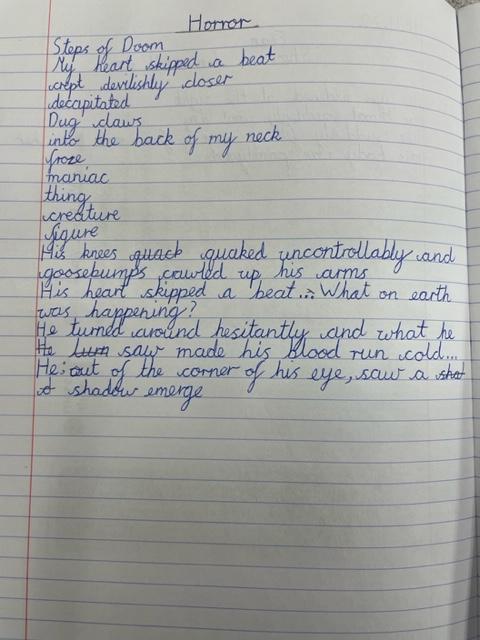 Horror
Steps of Doom
My heart skipped a beat
crept devilishly closer
decapitated
Dug claws
into the back of my neck
froze
maniac
thing
creature
figure
His knees quack quaked uncontrollably and
goosebumps crawled up his arms
His heart skipped a beat... What on earth
was happening?
He turned around hesitantly and what he
He turn saw made his blood run cold...
He; out of the corner of his eye, saw a shat
a shadow emerge